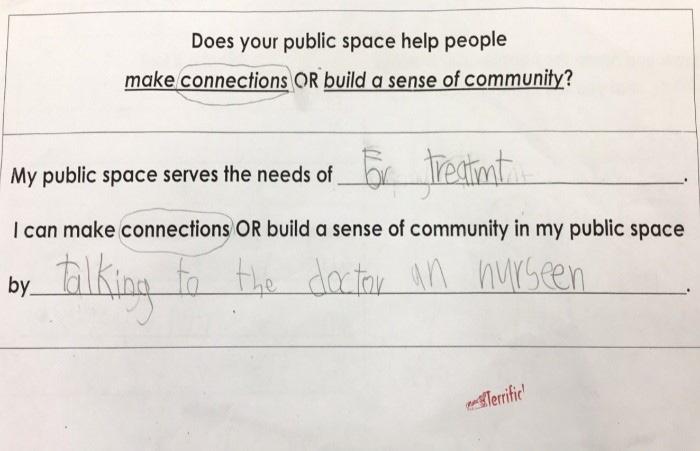 Does your public space help people
make connections OR build a sense of community?
My public space serves the needs of For treatmt.
I can make connections OR build a sense of community in my public space
by talking to the doctor an nurseen.
Terrific!